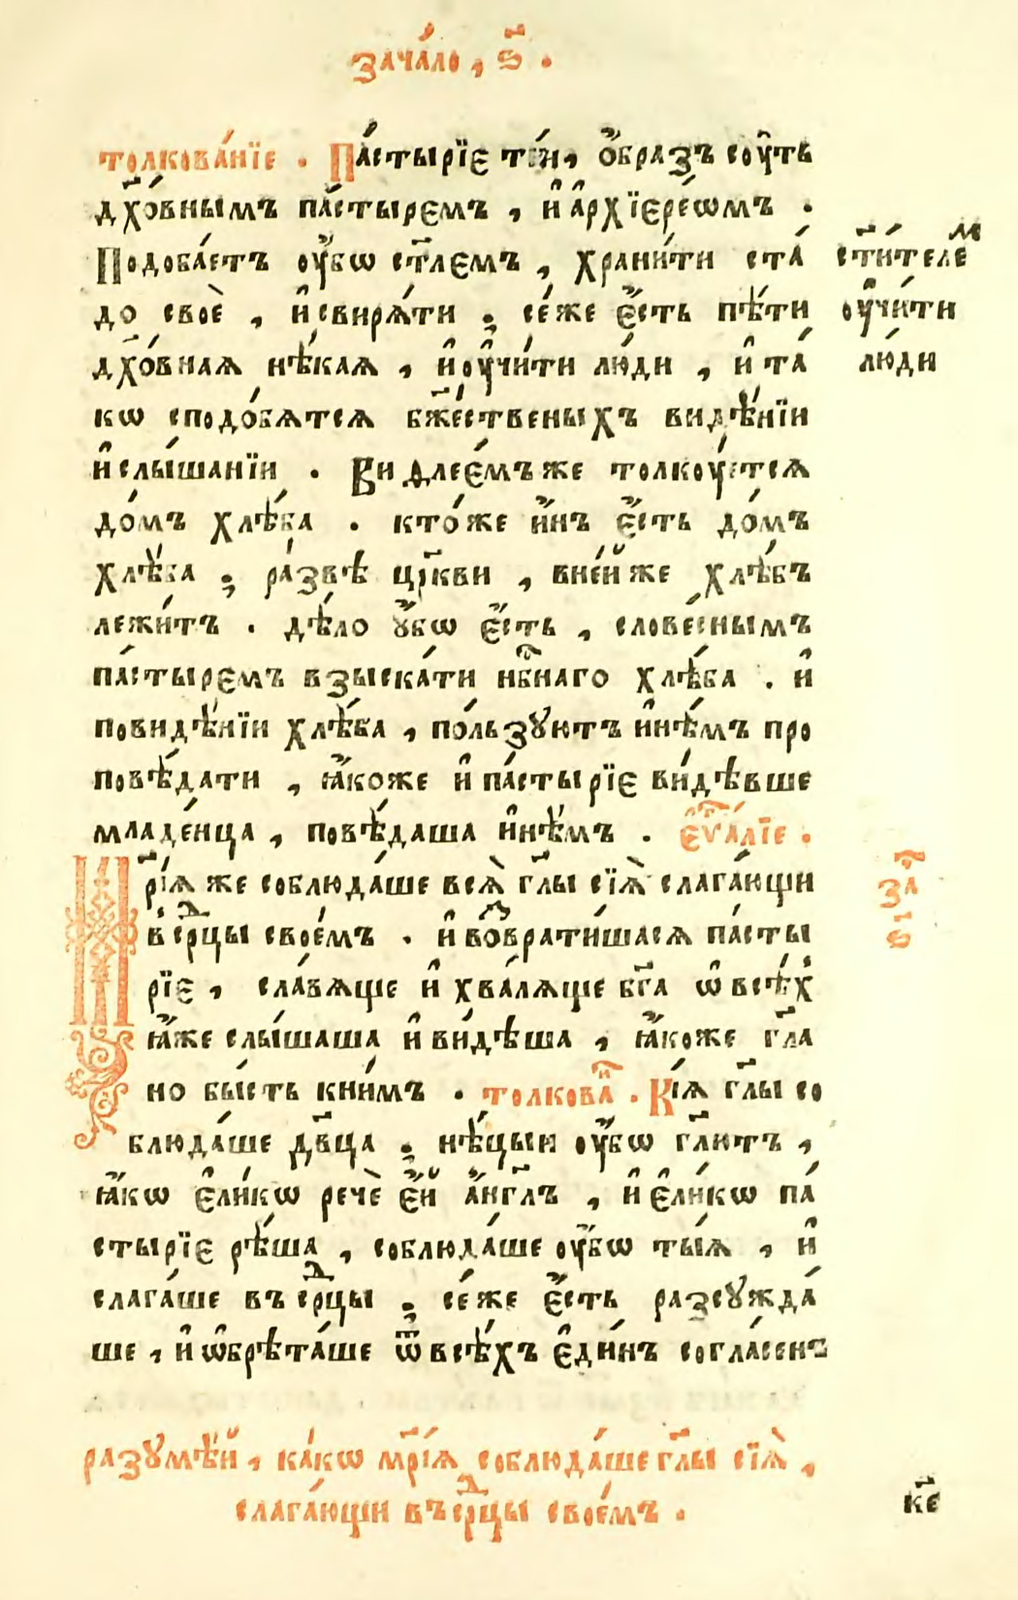 зача́ло , ѕ҃ .
толкова́нїе . Па́стырїє ті́и, ѡ҆́бразъ сꙋ́ть
дх҃о́внымъ па́стырємъ , и҆ а҆рхїєре́ѡмъ .
Подоба́етъ ᲂу҆́бѡ ст҃лємъ , храни́ти ста́
до своѐ , и҆ свирѧ́ти ; се́ же є҆́сть пѣ́ти
дх҃о́внаѧ нѣ́каѧ , и҆ ᲂу҆чи́ти лю́ди , и҆ та́
кѡ сподо́бѧтсѧ бж҃е́ственыхъ видѣ́нїи
и҆ слы́шанїи . Виѳлеє́мъ же толкꙋ́етсѧ
до́мъ хлѣ́ба . кто́ же и҆́нъ є҆́сть до́мъ
хлѣ́ба ; ра́звѣ цр҃кви , вне́й же хлѣ́бъ
лежи́тъ . дѣ́ло ᲂу҆́бѡ є҆́сть , слове́снымъ
па́стырємъ взыска́ти нб҃наго хлѣ́ба . и҆
повидѣ́нїи хлѣ́ба , по́льзꙋютъ и҆нѣ́мъ про
повѣ́дати , ꙗ҆́коже и҆ па́стырїє ви́дѣвше
младе́нца , повѣ́даша и҆нѣ́мъ . є҆ѵⷢ҇а́лїе .
Мр҃і́ѧ же соблюда́ше всѧ̀ гл҃ы сїѧ̀ слага́ющи
в се́рⷣцы свое́мъ . и҆ воⷥврати́шасѧ па́сты
рїє , сла́вѧще и҆ хва́лѧще бг҃а ѡ҆ всѣ́хъ
ꙗ҆́же слы́шаша и҆ ви́дѣша , ꙗ҆́коже гл҃а
но бы́сть кни́мъ . толковаⷩ҇і . Кі́ѧ гл҃ы со
блюда́ше дв҃ца ; нѣ́цыи ᲂу҆́бѡ гл҃ютъ ,
ꙗ҆́кѡ є҆ли́кѡ речѐ є҆́й а҆́нг҃лъ , и҆ є҆ли́кѡ па́
стырїє рѣ́ша , соблюда́ше ᲂу҆́бѡ ты́ѧ , и҆
слага́ше въ се́рⷣцы ; се́ же є҆́сть разсꙋжда́
ше , и҆ ѡ҆брѣта́ше ѿ всѣ́хъ є҆ди́нъ согла́сенъ
разꙋмѣ́й , ка́кѡ мр҃і́ѧ соблюда́ше гл҃ы сїѧ̀ ,
слага́ющи въ се́рⷣцы свое́мъ .
ст҃и́телеⷨ
ᲂу҆чи́ти
лю́ди
заⷱ҇
ѕ҃
к҃є